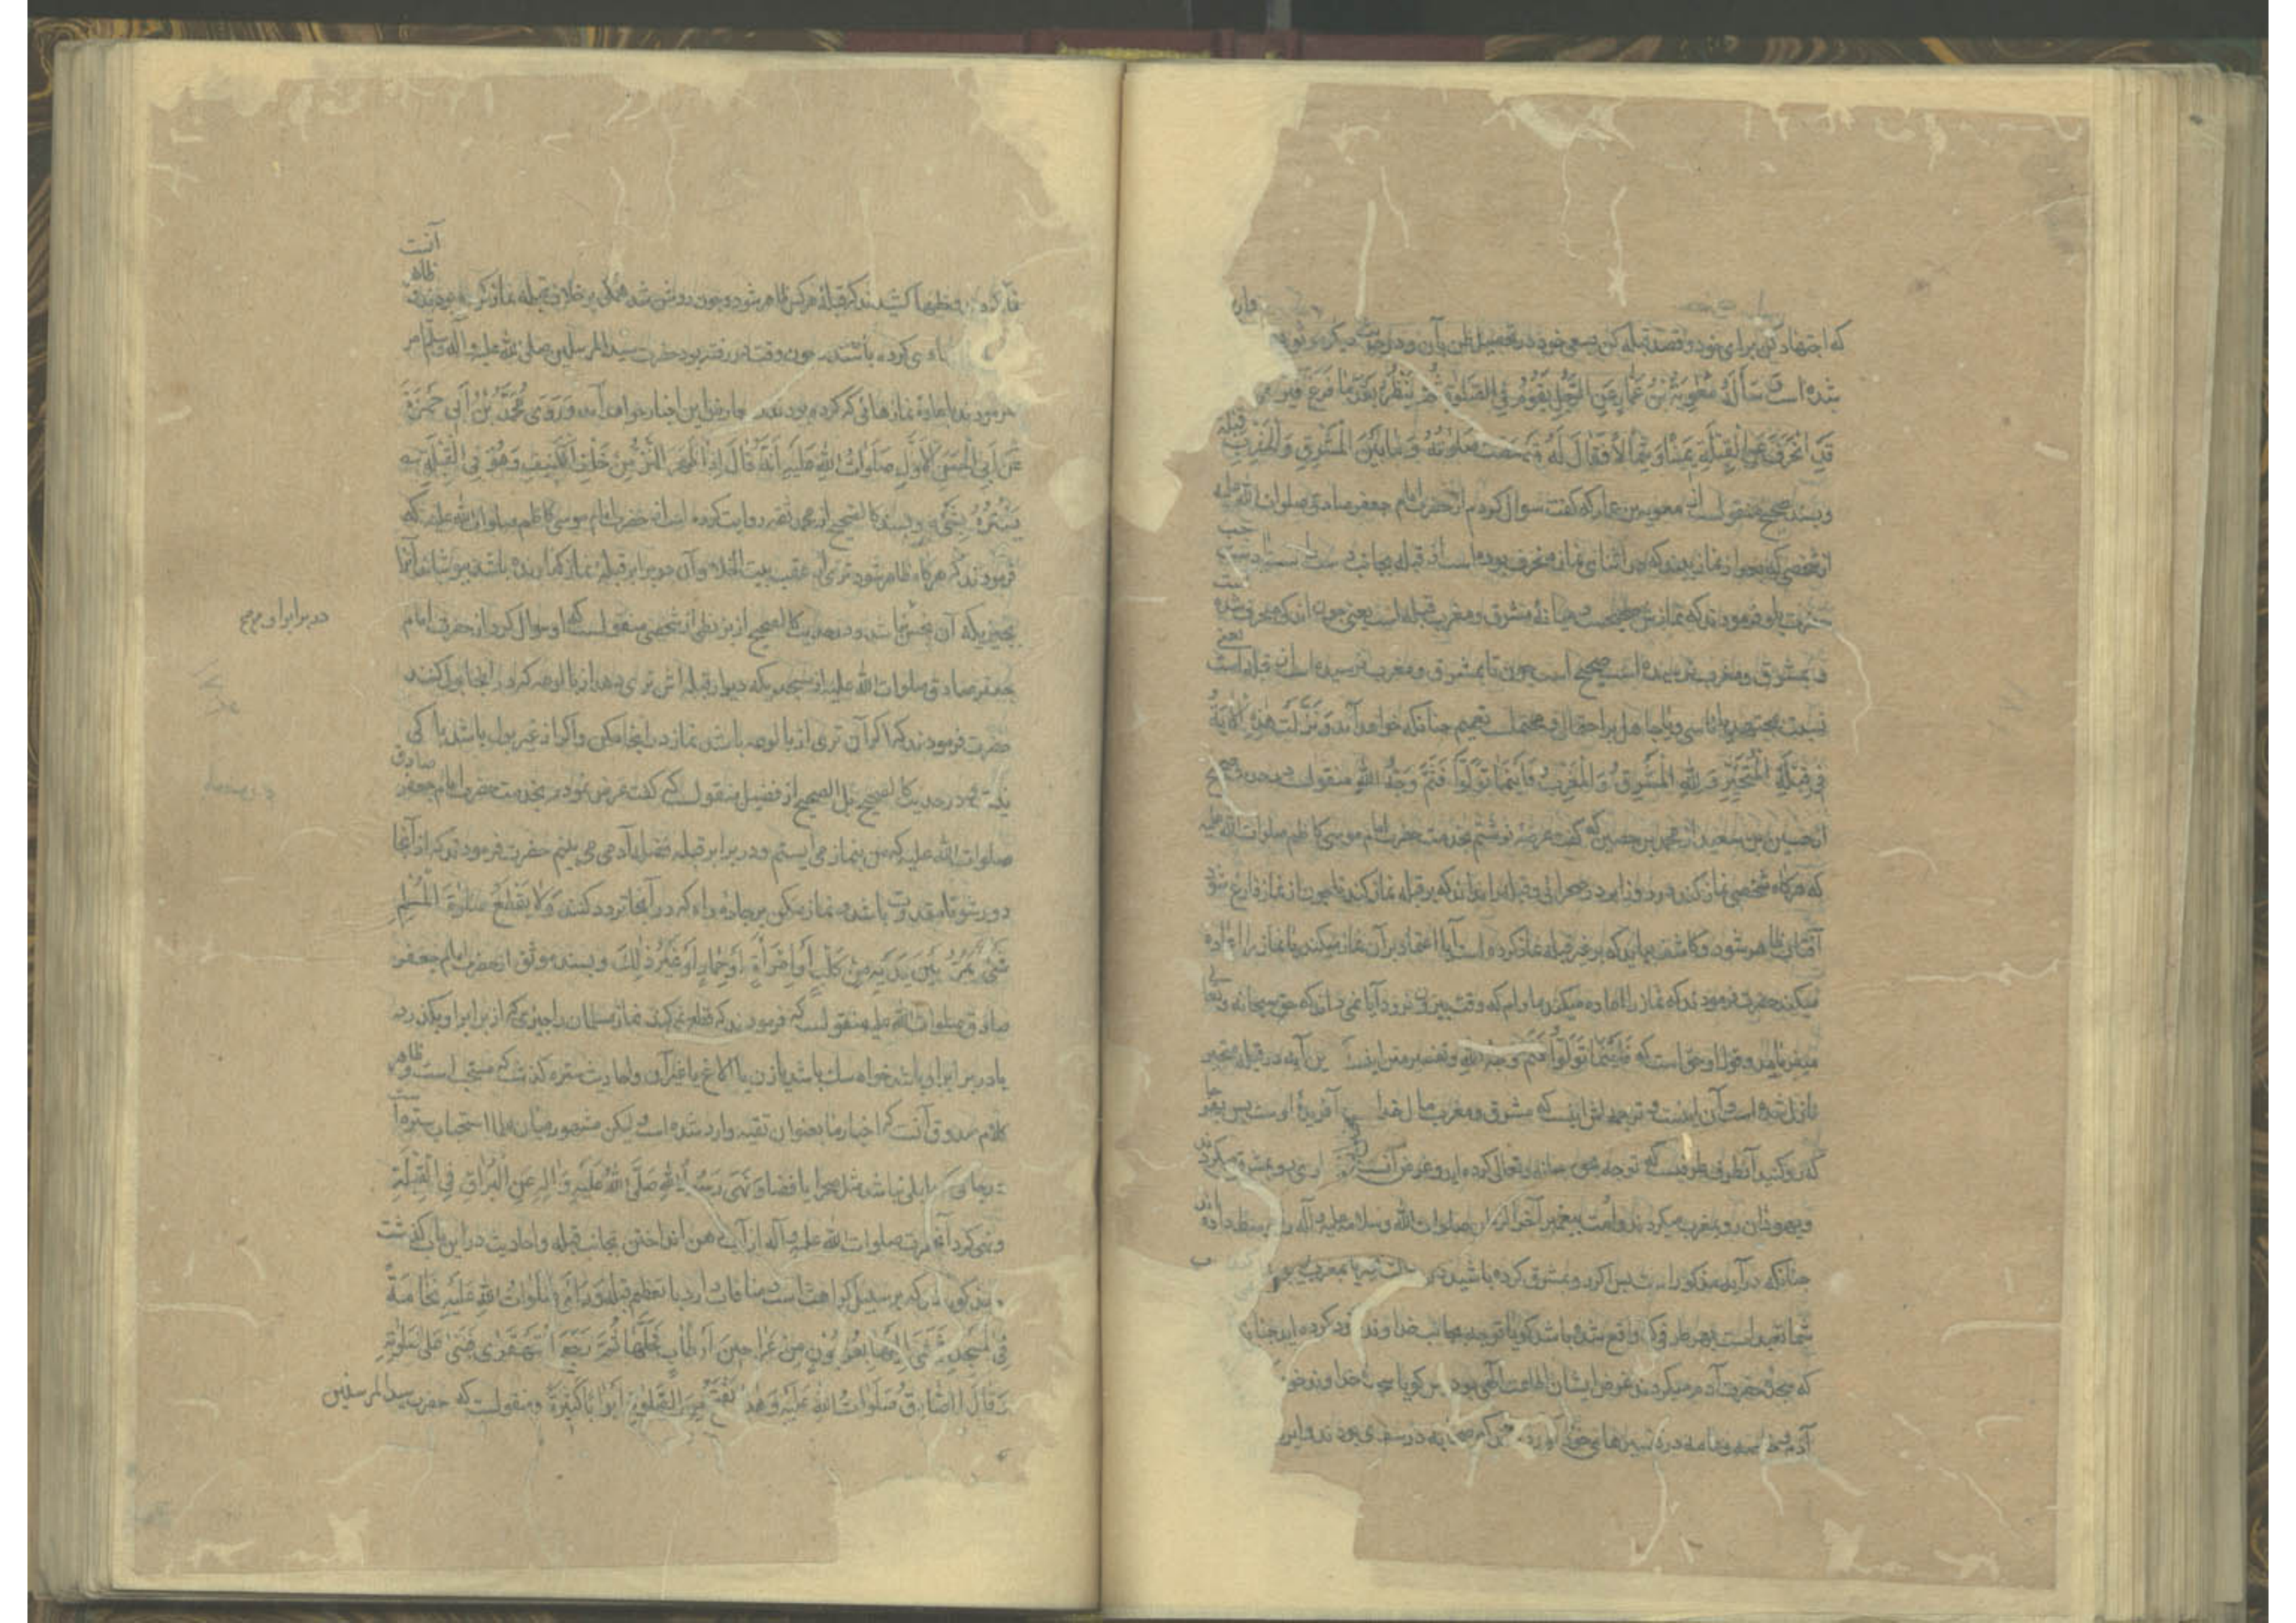 که اجتهاد کن برای خود و قصد قبله کن بسعی خود در تحصیل ظن بآن و در حدیث دیگر
شده است سَأَلَهُ مُعٰوِیَةُ بْنُ عَمَّارٍ عَنِ الرَّجُلِ یَقُومُ فِی الصَّلٰوةِ ثُمَّ یَنْظُرُ بَعْدَ مَا فَرَغَ فَیَرٰی
قَدِ انْحَرَفَ عَنِ الْقِبْلَةِ یَمِیْنًا وَشِمَالًا فَقَالَ لَهُ قَدْ مَضَتْ صَلٰوتُهُ وَمَا بَیْنَ الْمَشْرِقِ وَالْمَغْرِبِ قبله
وبسند صحیح منقولست از معویة بن عمار که گفت سوال کردم از حضرت امام جعفر صادق صلوات الله علیه
از شخصی که بعد از نماز بیند که در اثنای نماز منحرف بوده است از قبله بجانب دست راست یا دست چپ
حضرت باو فرمودند که نمازش صحیحست و میانهٔ مشرق و مغرب قبله است یعنی چون اندکی منحرف شده است
بمشرق و مغرب نرسیده است صحیح است چون تا بمشرق و مغرب نرسیده است آن قبله است یعنی
نسبت بمجتهد یا ناسی و یا جاهل بر احتمالی و محتملست تعمیم چنانکه خواهد آمد وَنَزَلَتْ هٰذِهِ الْآیَةُ
فِی قِبْلَةِ الْمُتَحَیِّرِ وَلِلّٰهِ الْمَشْرِقُ وَالْمَغْرِبُ فَأَیْنَمَا تُوَلُّوا فَثَمَّ وَجْهُ اللّٰهِ منقولست در حدیث صحیح
از حسین بن سعید از محمد بن حصین که گفت عریضه نوشتم بخدمت حضرت امام موسی کاظم صلوات الله علیه
که هرگاه شخصی نماز کند در روز ابر در صحرائی و قبله را نداند که بر قبله نماز کند تا چون از نماز فارغ شود
آفتاب ظاهر شود و کاشف بیاید که بر غیر قبله نماز کرده است آیا اعتماد بر آن نماز میکند یا نماز را اعاده
میکند حضرت فرمودند که نماز را اعاده میکند مادام که وقت بیرون نرود آیا نمی‌داند که حق سبحانه وتعالی
میفرماید و قول او حق است که فَأَیْنَمَا تُوَلُّوا فَثَمَّ وَجْهُ اللّٰهِ وتفسیر متن اینست این آیه در قبله متحیر
نازل شده است و آن اینست و ترجمه اش اینست که مشرق و مغرب مال خدا آفریدهٔ اوست پس بهر جا
که رو کنید آنطرف طرفیست که توجه بحق سبحانه وتعالی کرده اید و غرض آنست رو بمشرق میکردند
ویهودان رو بمغرب میکردند و امت پیغمبر آخر الزمان صلوات الله وسلامه علیه وآله را وسط داده اند
چنانکه در آیه مذکور است پس اگر رو بمشرق کرده باشید یا بمغرب
شما تعبد است بهر طرفی که واقع شده باشد گویا توجه بجانب خداوند خود کرده اید چنان
که سجدهٔ حضرت آدم میکردند غرض ایشان اطاعت الهی بود پس گویا سجدهٔ خداوند خود
وعامه در تفسیرهای خود آورده اند که صحابه در سفری بودند و ابر
آنست
ظاهر
وخطها کشیدند که قبلهٔ هر کس ظاهر شود و چون روشن شد همگی بر خلاف قبله نماز کرده بودند
کرده باشند چون وقت در رفته بود حضرت سید المرسلین صلی الله علیه وآله وسلم امر
نفرمودند باعادهٔ نمازهائی که کرده بودند و معارض این اخبار خواهد آمد وَرَوٰی مُحَمَّدُ بْنُ أَبِی حَمْزَةَ
عَنْ أَبِی الْحَسَنِ الْأَوَّلِ صَلَوَاتُ اللّٰهِ عَلَیْهِ أَنَّهُ قَالَ إِذَا ظَهَرَ النَّزُّ مِنْ خَلْفِ الْکَنِیفِ وَهُوَ فِی الْقِبْلَةِ
یَسْتُرُهُ بِشَیْءٍ وبسند کالصحیح از محمد ثقه روایت کرده است از حضرت امام موسی کاظم صلوات الله علیه که
فرمودند که هرگاه ظاهر شود تری از عقب بیت الخلا و آن در برابر قبلهٔ نماز گذارنده باشد بپوشاند آنرا
بچیزیکه آن بخش باشد و در حدیث کالصحیح از بزنطی از شخصی منقولست که او سوال کرد از حضرت امام
در برابر او
جعفر صادق صلوات الله علیه از مسجدیکه دیوار قبله اش تری بدهد از بالوعه که در اینجا بول کنند
حضرت فرمودند که اگر آن تری از بالوعه باشد نماز در اینجا مکن و اگر از غیر بول باشد باکی
نیست و در حدیث کالصحیح بل الصحیح از فضیل منقولست که گفت عرض نمودم بخدمت حضرت امام جعفر صادق
صلوات الله علیه که من بنماز می ایستم و در برابر قبله فضلهٔ آدمی می بینم حضرت فرمودند که از آنجا
دور شو تا مقدورت باشد و نماز مکن بر جادهٔ راه که در آنجا تردد کنند وَلَا یَقْطَعُ صَلٰوةَ الْمُسْلِمِ
شَیْءٌ یَمُرُّ بَیْنَ یَدَیْهِ مِنْ کَلْبٍ أَوِ امْرَأَةٍ أَوْ حِمَارٍ أَوْ غَیْرِ ذٰلِکَ وبسند موثق از حضرت امام جعفر
صادق صلوات الله علیه منقولست که فرمودند که قطع نمیکند نماز مسلمان را چیزی که از برابر او بگذرد
یا در برابر او باشد خواه سک باشد یا زن یا الاغ یا غیر آن و احادیث ستره گذشت که مستحب است و ظاهر
کلام صدوق آنست که اخبار ما بعنوان تقیه وارد شده است و لیکن مشهور میان علما استحباب ستره است
نباشد مثل صحرا یا فضا وَنَهٰی رَسُولُ اللّٰهِ صَلَّی اللّٰهُ عَلَیْهِ وَآلِهِ عَنِ الْبُزَاقِ فِی الْقِبْلَةِ
ونهی کرد آنحضرت صلوات الله علیه وآله از آب دهن انداختن بجانب قبله و احادیث در این باب گذشت
مذکور که بر سبیل کراهت است و منافات دارد با تعظیم قبله وَرَأٰی صَلَوَاتُ اللّٰهِ عَلَیْهِ نُخَامَةً
فِی الْمَسْجِدِ فَمَشٰی إِلَیْهَا بِعُرْجُونٍ مِنْ عَرَاجِینِ أَرْطَابٍ فَحَکَّهَا ثُمَّ رَجَعَ الْقَهْقَرٰی فَبَنٰی عَلٰی صَلٰوتِهِ
وَقَالَ الصَّادِقُ صَلَوَاتُ اللّٰهِ عَلَیْهِ وَهٰذَا یَفْتَحُ مِنَ الصَّلٰوةِ أَبْوَابًا کَثِیرَةً ومنقولست که حضرت سید المرسلین